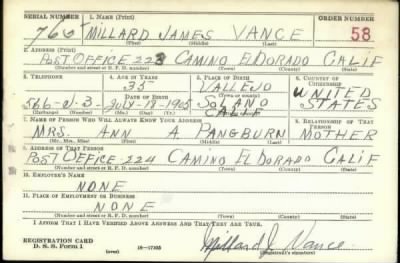 SERIAL NUMBER 1. NAME (Print) ORDER NUMBER
766 MILLARD JAMES VANCE 58
(First) (Middle) (Last)
2. ADDRESS (Print)
POST OFFICE-223 CAMINO ELDORADO CALIF
(Number and street or R. F. D. number) (Town) (County) (State)
3. TELEPHONE 4. AGE IN YEARS 5. PLACE OF BIRTH 6. COUNTRY OF CITIZENSHIP
35 VALLEJO UNITED
DATE OF BIRTH (Town or county)
566-J-3- JULY-19-1905 SOLANO CALIF STATES
(Exchange) (Number) (Mo.) (Day) (Yr.) (State or country)
7. NAME OF PERSON WHO WILL ALWAYS KNOW YOUR ADDRESS 8. RELATIONSHIP OF THAT PERSON
MRS. ANN A PANGBURN MOTHER
(Mr., Mrs., Miss) (First) (Middle) (Last)
9. ADDRESS OF THAT PERSON
POST OFFICE-224 CAMINO ELDORADO CALIF
(Number and street or R. F. D. number) (Town) (County) (State)
10. EMPLOYER'S NAME
NONE
11. PLACE OF EMPLOYMENT OR BUSINESS
NONE
(Number and street or R. F. D. number) (Town) (County) (State)
I AFFIRM THAT I HAVE VERIFIED ABOVE ANSWERS AND THAT THEY ARE TRUE.
REGISTRATION CARD
D. S. S. Form 1 (over) 16-17105 Millard J. Vance